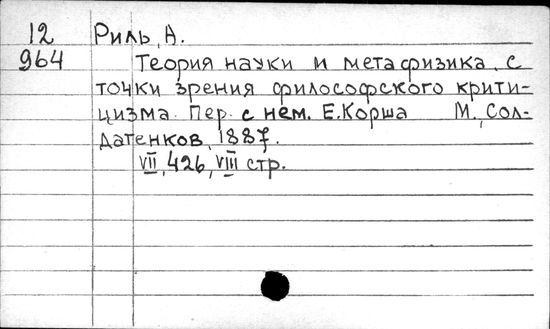 12 Риль, А.
964 Теория науки и метафизика с
точки зрения философского крити-
цизма. Пер. с нем. Е. Корша М., Сол-
датенков, 1887.
VII, 426, VIII стр.